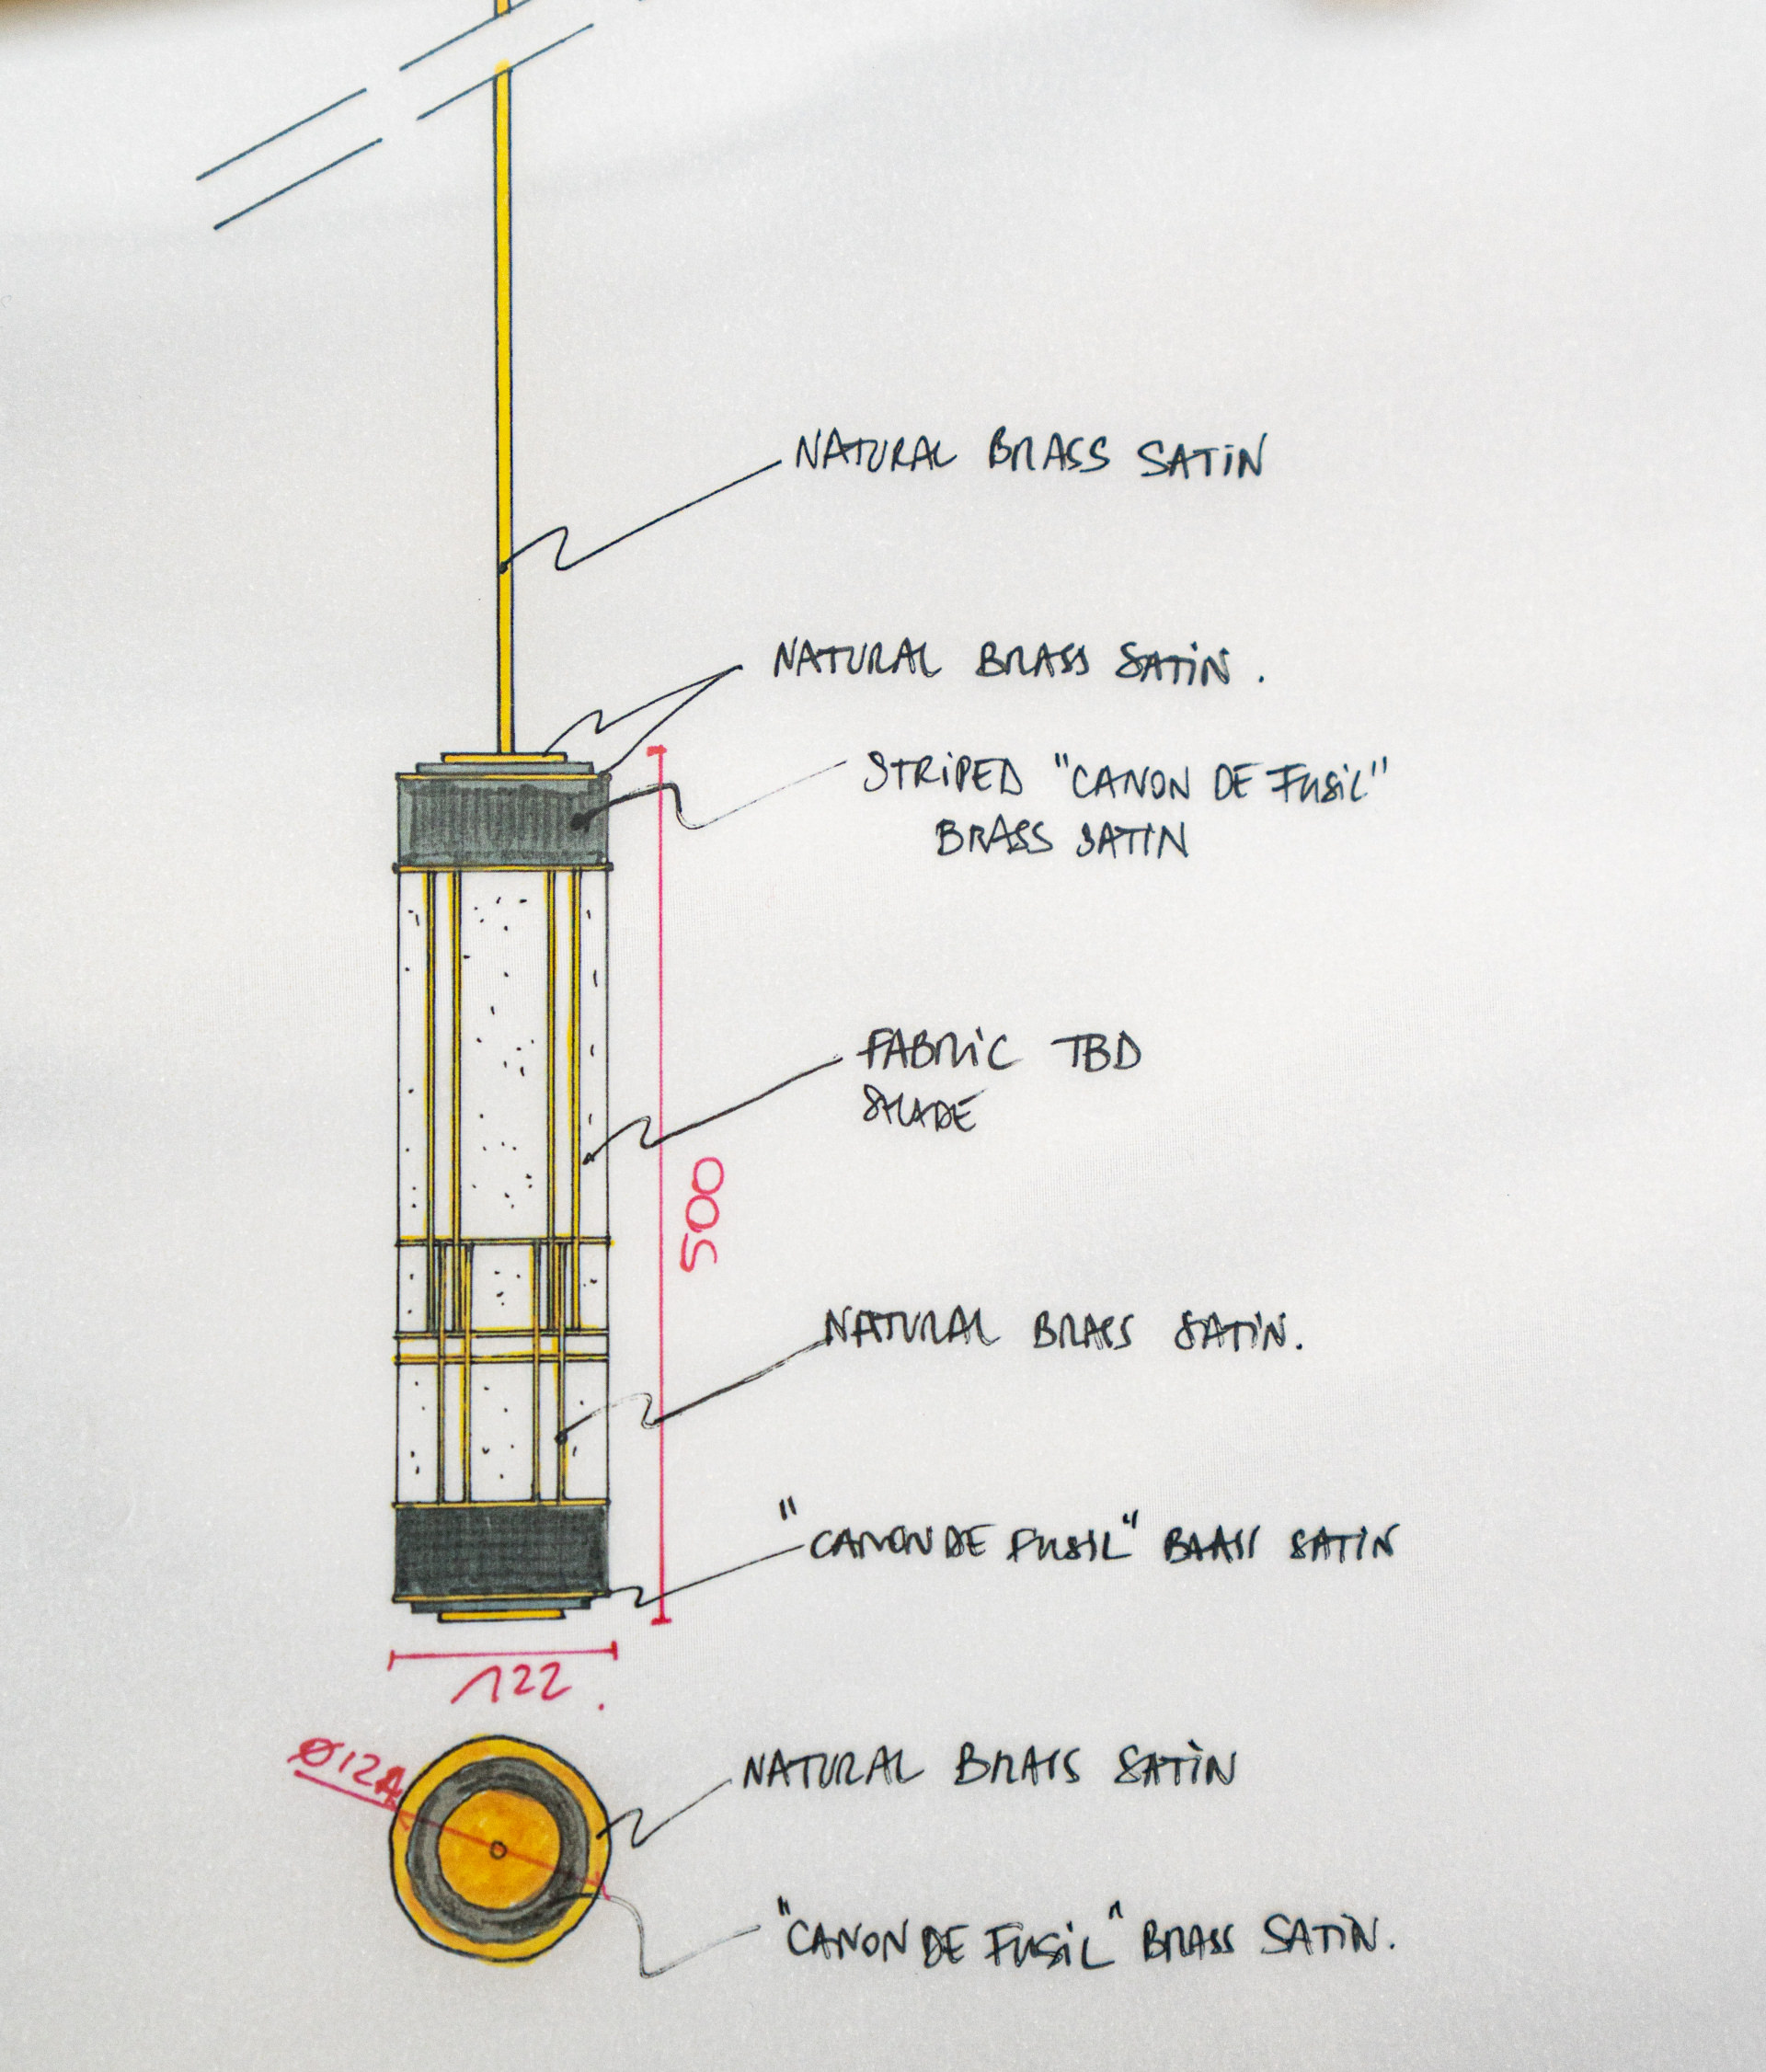 NATURAL BRASS SATIN
NATURAL BRASS SATIN.
STRIPED "CANON DE FUSIL"
BRASS SATIN
FABRIC TBD
SHADE
500
NATURAL BRASS SATIN.
"CANON DE FUSIL" BRASS SATIN
122.
NATURAL BRASS SATIN
"CANON DE FUSIL" BRASS SATIN.